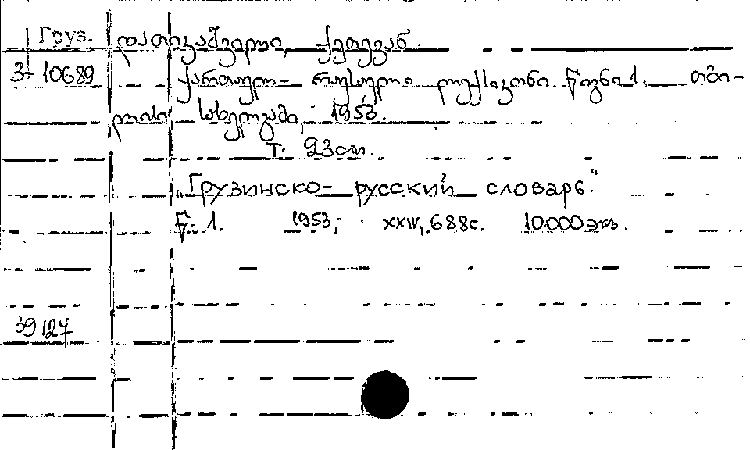 Груз.
დათიკაშვილი, ქეთევან.
3-10689
ქართულ-რუსული ლექსიკონი. წიგნი 1. თბი-
ლისი, სახელგამი, 1953.
Т. 23cm.
„Грузинско-русский словарь“
წ. 1. 1953; XXIV, 688с. 10000экз.
39127